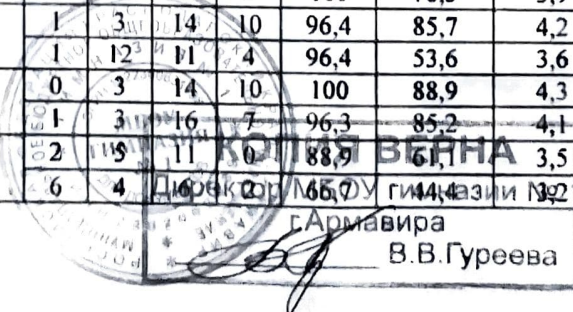 1 3 14 10 96,4 85,7 4,2
1 12 11 4 96,4 53,6 3,6
0 3 14 10 100 88,9 4,3
1 3 16 7 96,3 85,2 4,1
2 5 11 0 88,9 61,1 3,5
6 4 6 2 66,7 44,4 3,2
КОПИЯ ВЕРНА
Директор МБОУ гимназии №
г.Армавира
В.В.Гуреева